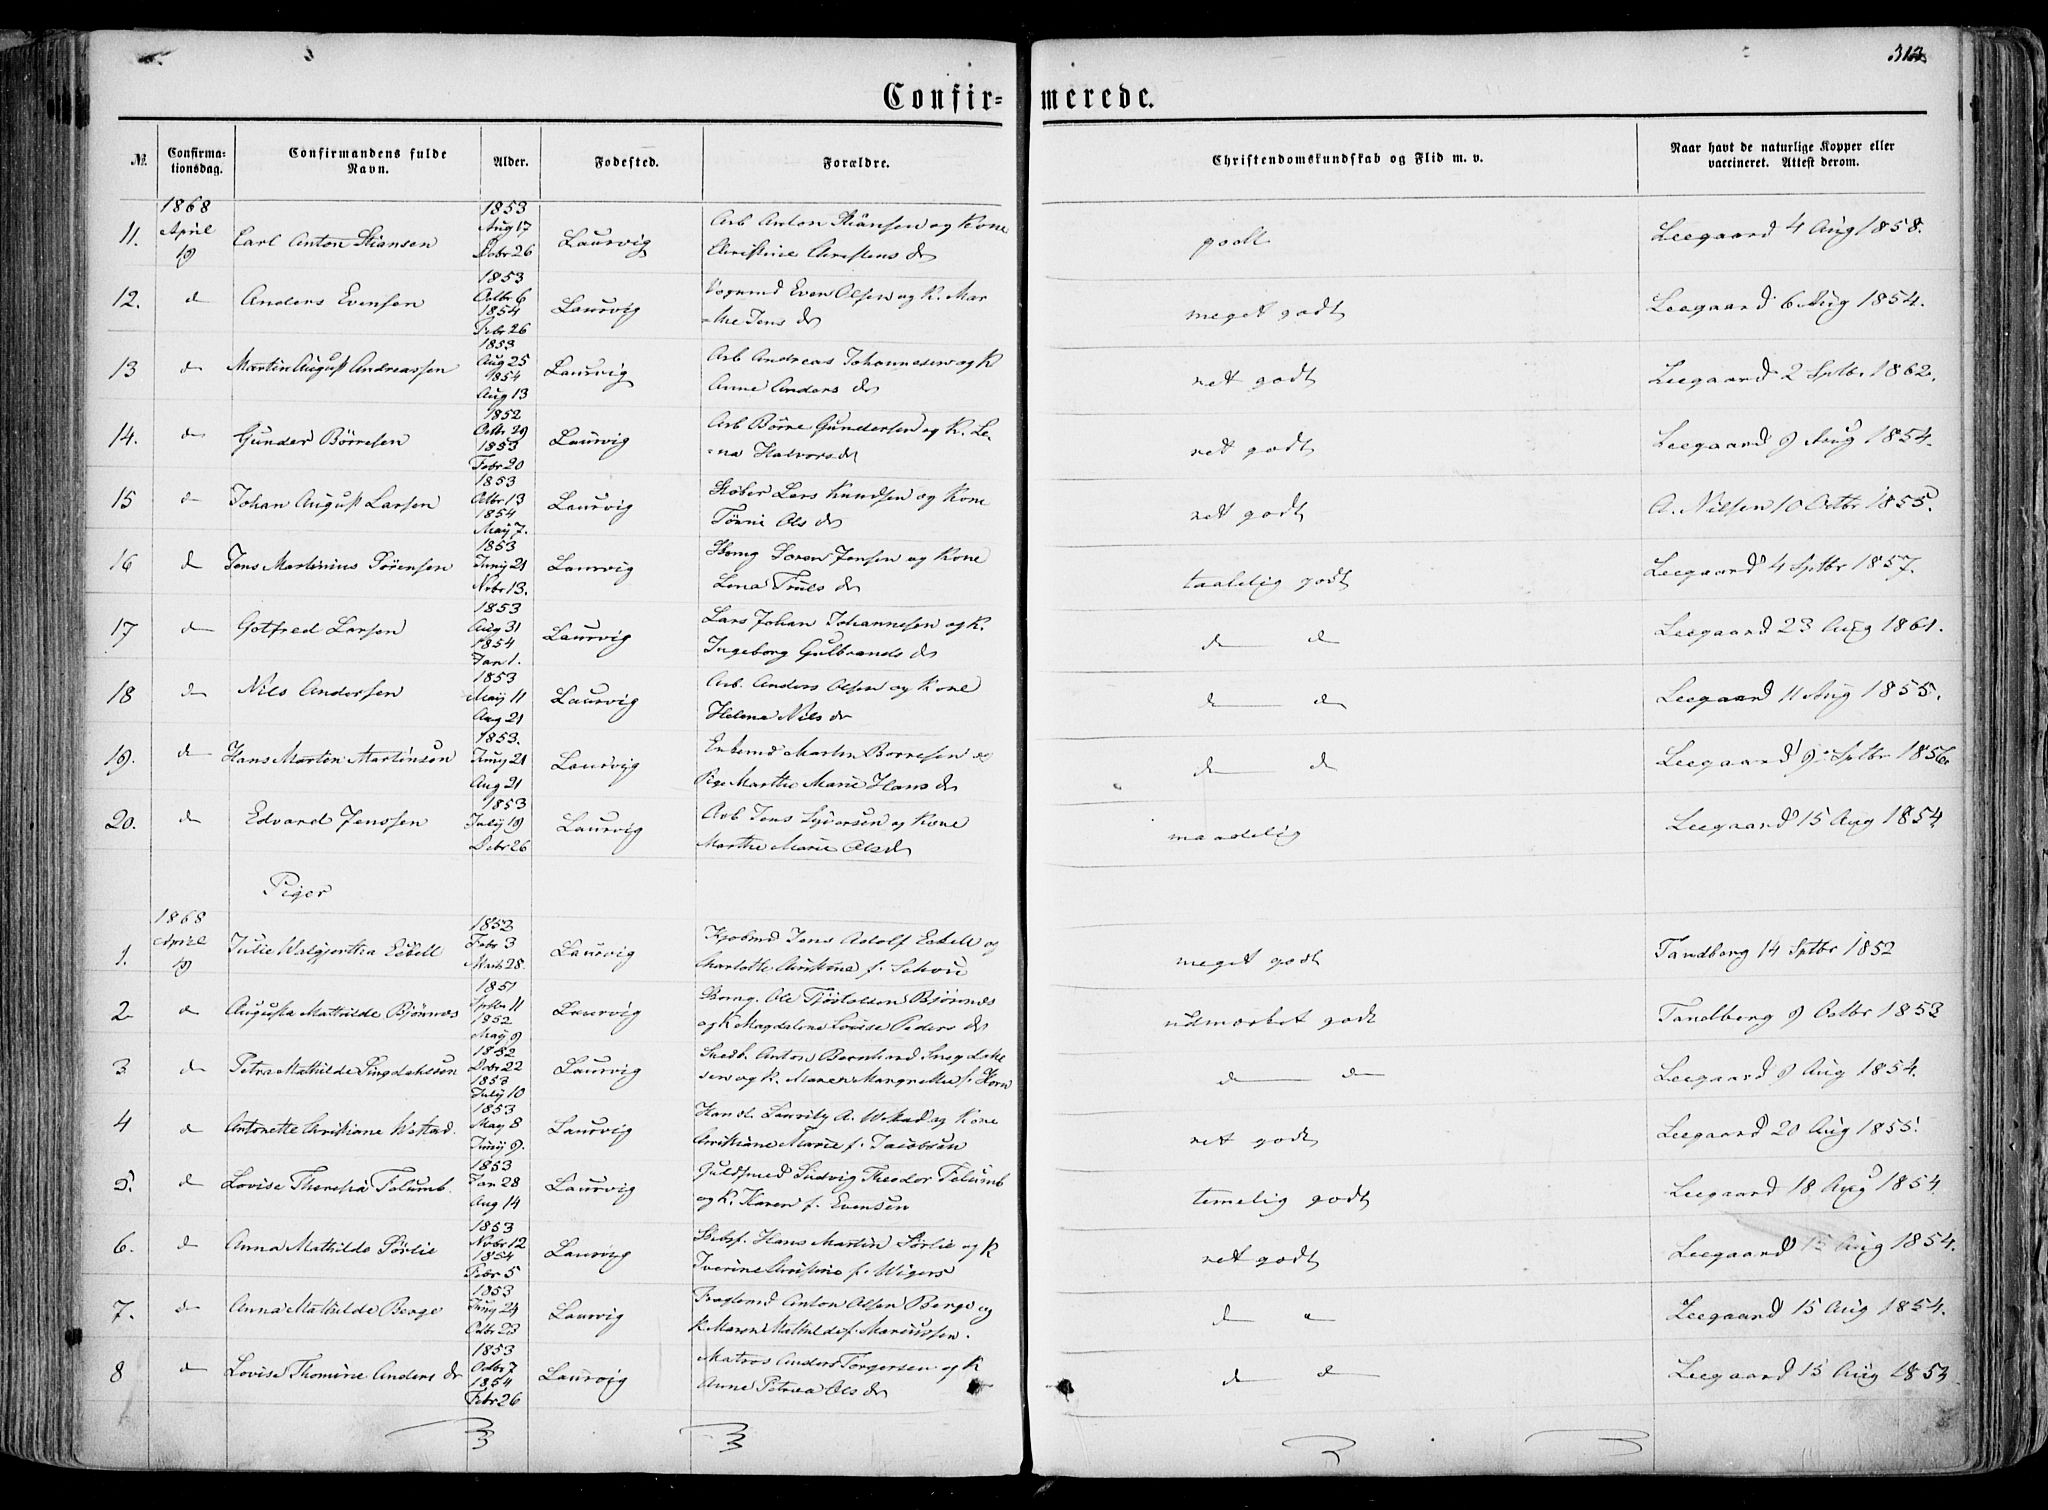 313
Confirmerede.
No. Confirmationsdag. Confirmandens fulde Navn. Alder. Fødested. Forældre. Christendomskundskab og Flid m. v. Naar havt de naturlige Kopper eller vaccineret. Attest derom.
1868 1853
11. April 19 Carl Anton Stiansen Aug 17 Laurvig Arb Anton Stiansen og Kone godt Leegaard 4 Aug 1858.
Debr 26 Christine Christens d
1853
12. d Anders Evensen Octbr 6 Laurvig Even Olsen og K. Mar meget godt Leegaard 6 Aug 1854.
1854 Febr 26 =the Jens d
1853
13 d Martin August Andreassen Aug 25 Laurvig Arb Andreas Johannesen og K ret godt Leegaard 2 Sptbr 1862.
1854 Aug 13 Anne Anders d
1852
14. d Gunder Börresen Octbr 29 Laurvig Arb Börre Gundersen og K. Le= ret godt Leegaard 9 Aug 1854.
1853 Febr 20 =na Halvors d
1853
15 d Johan August Larsen Octbr 13 Laurvig Støber Lars Knudsen og Kone ret godt A. Nilsen 10 Octbr 1855.
1854 May 7. Ols d
1853
16 d Jens Martinius Sörensen Juny 21 Laurvig Soren Jensen og Kone taalelig godt Leegaard 4 Sptbr 1857.
Nobr 13. Lena Truls d
1853
17 d Gotfred Larsen Aug 31 Laurvig Lars Johan Johannesen og K. d d Leegaard 23 Aug 1861.
1854 Jan 1. Ingeborg Gulbrands d
1853
18 d Nils Andersen May 11 Laurvig Arb. Anders Olsen og Kone d d Leegaard 11 Aug 1855.
Aug 21 Helene Nils d
1853.
19. d Hans Martin Martinsen Juny 21 Laurvig Martin Borresen d d Leegaard 9 Sptbr 1856
Aug 21 Marthe Marie Hans d
1853
20. d Edvard Jenssen July 19 Laurvig Arb Jens Syversen og Kone maadelig Leegaard 15 Aug 1854
Debr 26 Marthe Marie Ols d
Piger
1868 1852
1. April 19 Julie Febr 3 Laurvig Kjobmd Jens Adolf og meget godt Tandberg 14 Sptbr 1852
Marts 28. Charlotte Christine f.
1851
2 d Augusta Mathilde Bjönnes Sptbr 11 Laurvig Ole Bjönnes udmærket godt Tandberg 9 Octbr 1853
1852 May 9 og K Magdalene Lovise Peders d
1852
3 d Petra Mathilde Debr 22 Laurvig Anton Bernhard d d Leegaard 9 Aug 1854.
1853 July 10 sen og K. Maren Margrethe f. Horn
1853
4 d Antonette Christiane Westad. May 8 Laurvig Handl. Lauritz A. Westad og Kone ret godt Leegaard 20 Aug 1855.
Juny 9. Christiane Marie f. Jacobsen
1853
5. d Lovise Theresia Felumb. Jan 28 Laurvig Guldsmed Ludvig Theodor Felumb temelig godt Leegaard 18 Aug 1854.
Aug 14 og K. Karen f. Evensen
1853
6. d Anna Mathilde Sörlie Nobr 12 Laurvig Hans Martin Sörlie og K ret godt Leegaard 15 Aug 1854.
1854 Febr 5 Iverine Christine f. Wigers
1853
7. d Anna Mathilde Berge Juny 24 Laurvig Anton Olsen Berge og d d Leegaard 15 Aug 1854.
Octbr 23 K. Maren Mathilde f. Mariussen.
1853
8 d Lovise Thomine Anders dr Octbr 7 Laurvig Matros Anders Torgersen og K d d Leegaard 15 Aug 1853
1854 Febr 26 Anne Petrea Ols d